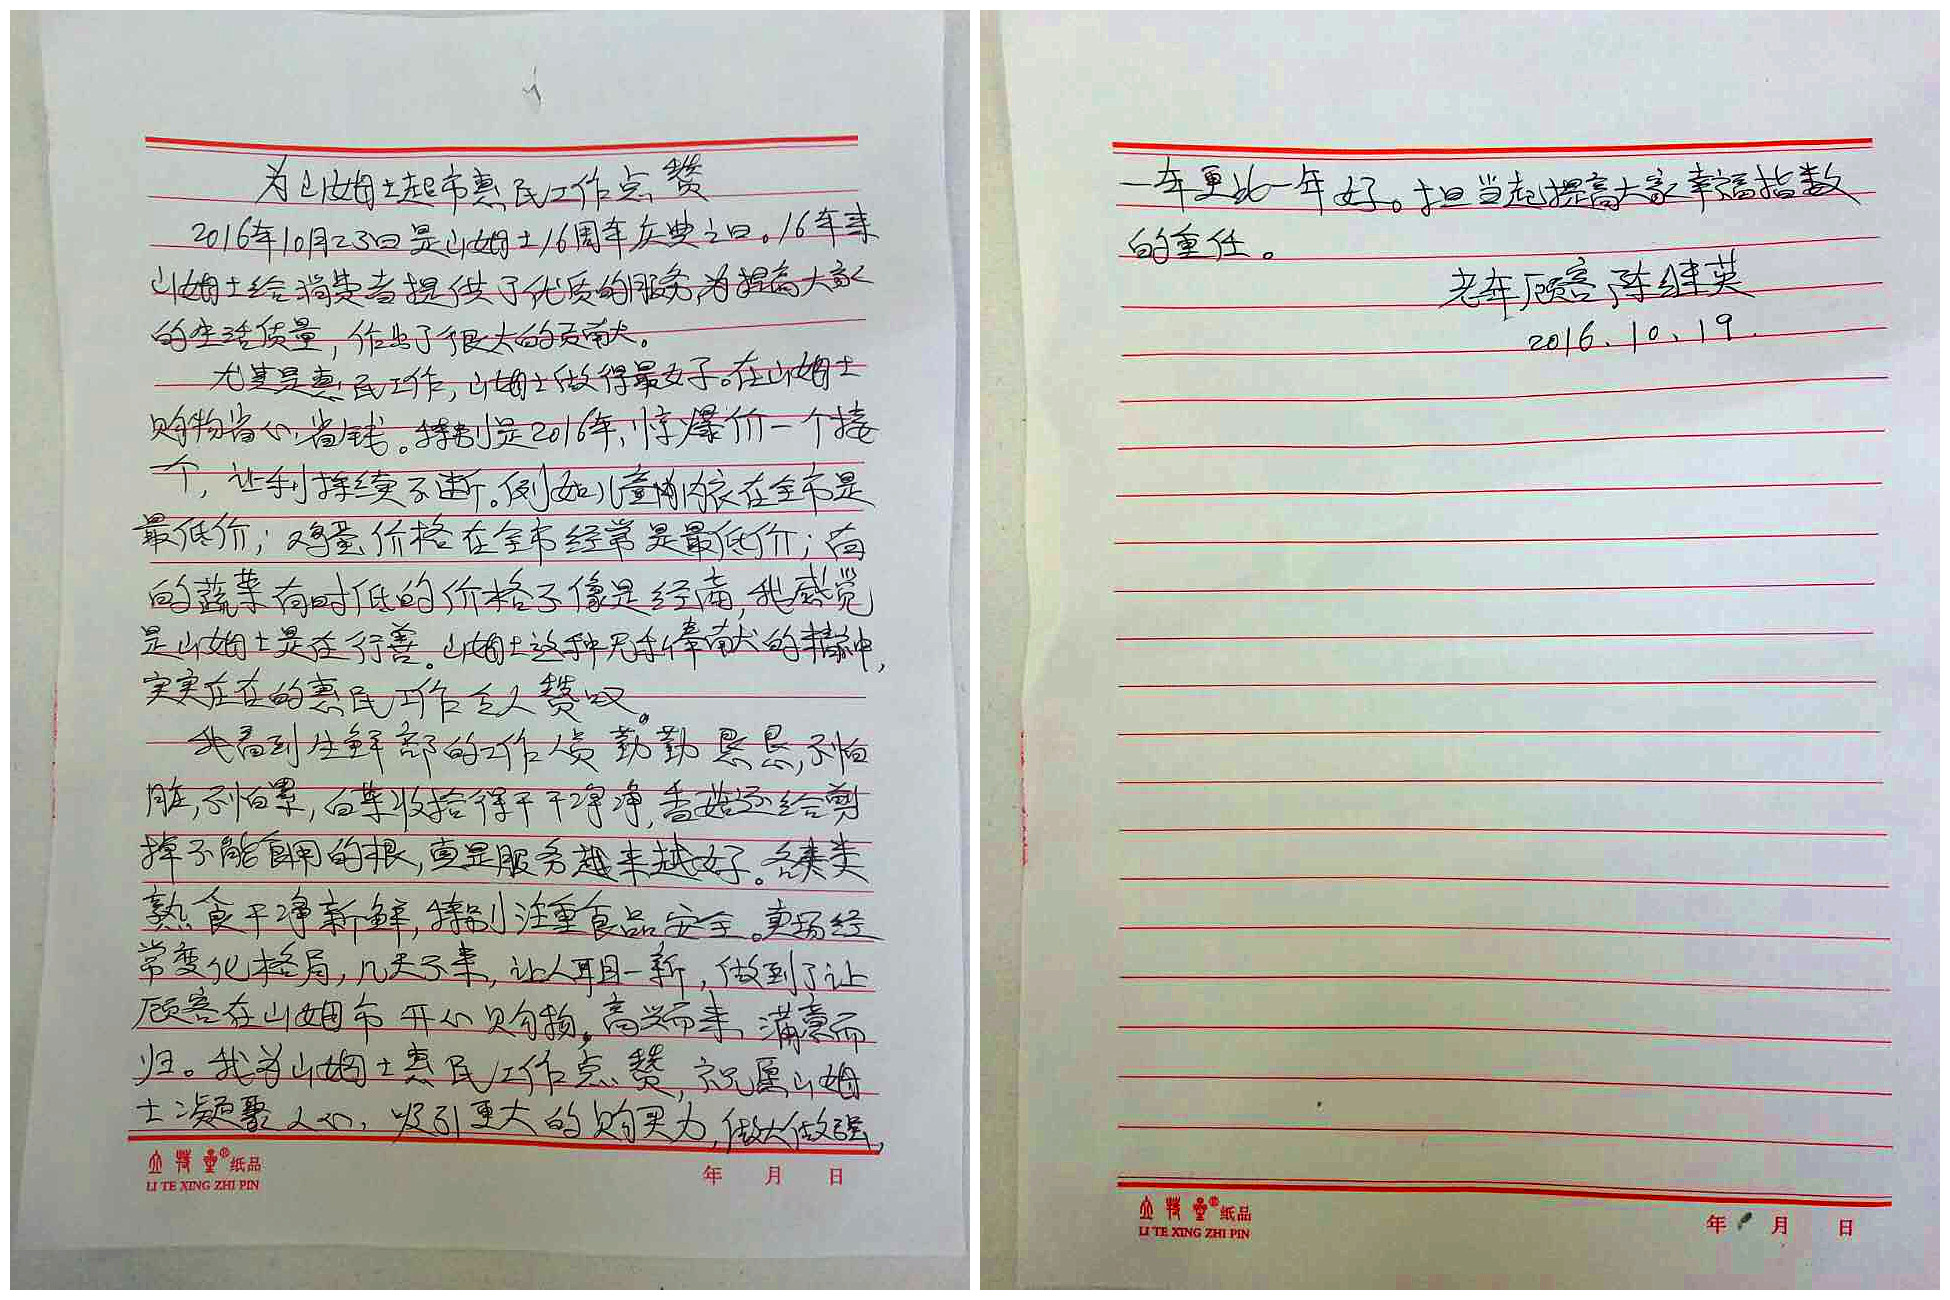 为山姆士超市惠民工作点赞
2016年10月23日是山姆士16周年庆典之日。16年来
山姆士给消费者提供了优质的服务,为提高大家
的生活质量,作出了很大的贡献。
尤其是惠民工作,山姆士做得最好。在山姆士
购物省心、省钱。特别是2016年,惊爆价一个接
一个,让利持续不断。例如儿童内衣在全市是
最低价;鸡蛋价格在全市经常是最低价;有
的蔬菜有时低的价格不像是经商,我感觉
是山姆士是在行善。山姆士这种无私奉献的精神,
实实在在的惠民工作令人赞叹。
我看到生鲜部的工作人员勤勤恳恳,不怕
脏,不怕累,白菜收拾得干干净净,香菇还给剪
掉不能食用的根,真是服务越来越好。各类
熟食干净新鲜,特别注重食品安全。卖场经
常变化格局,几天不来,让人耳目一新,做到了让
顾客在山姆士开心购物。高兴而来,满意而
归。我为山姆士惠民工作点赞,祝愿山姆
士凝聚人心,吸引更大的购买力,做大做强,
立特童®纸品
LI TE XING ZHI PIN
年 月 日
一年更比一年好。担当起提高大家幸福指数
的重任。
老年顾客 陈继英
2016.10.19.
立特童®纸品
LI TE XING ZHI PIN
年 月 日